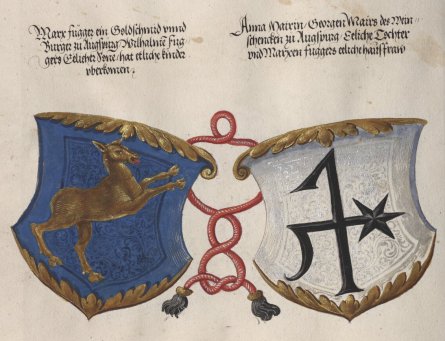 Marx Fugger ein Goldschmid vnnd
Burger zu Augspurg Wilhalmen Fug-
gers Eelicher Sone / hat etliche kinder
vberkomen.
Anna Mairin / Georgen Mairs des Wein
schencken zu Augspurg / Eeliche Tochter
vnd Marxen Fuggers eeliche haussfraw